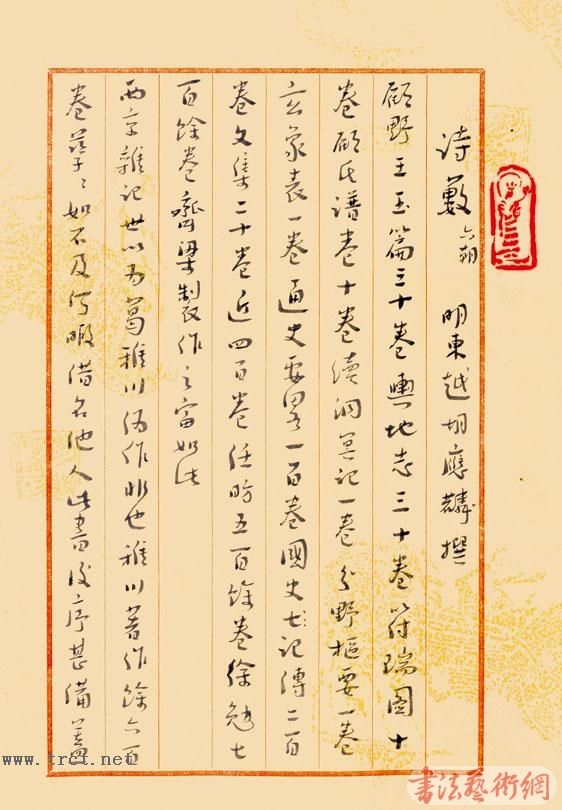 詩藪 六朝 明東越胡應麟撰
顧野王玉篇三十卷輿地志三十卷符瑞圖十
卷顧氏譜卷十卷續洞冥記一卷分野樞要一卷
玄象表一卷通史要略一百卷國史志記傳二百
卷文集二十卷近四百卷任昉五百餘卷徐勉七
百餘卷齊梁製作之富如此
西京雜記世以為葛稚川偽作非也稚川著作餘六百
卷孳〻如不及何暇借名他人此書後序甚備蓋
www.trct.net
書法藝術網